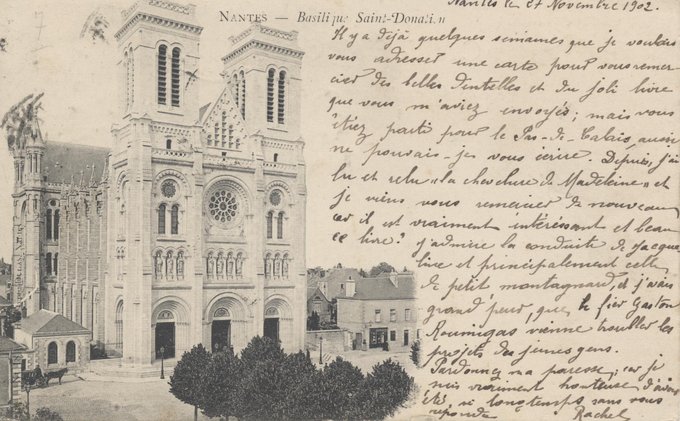 NANTES — Basilique Saint-Donatien
Nantes le 27 Novembre 1902.
Il y a déjà quelques semaines que je voulais
vous adresser une carte pour vous remer-
cier des belles dentelles et du joli livre
que vous m'aviez envoyés; mais vous
étiez partie pour le Pas-de-Calais, aussi
ne pouvais-je vous écrire. Depuis, j'ai
lu et relu « la chevelure de Madeleine » et
je viens vous remercier de nouveau
car il est vraiment intéressant et beau
ce livre! j'admire la conduite de Jacque
line et principalement celle
du petit montagnard, et j'avais
grand peur que le fier Gaston
Roumigas vienne troubler les
projets des jeunes gens.
Pardonnez ma paresse; car je
suis vraiment honteuse d'avoir
été si longtemps sans vous
répondre Rachel